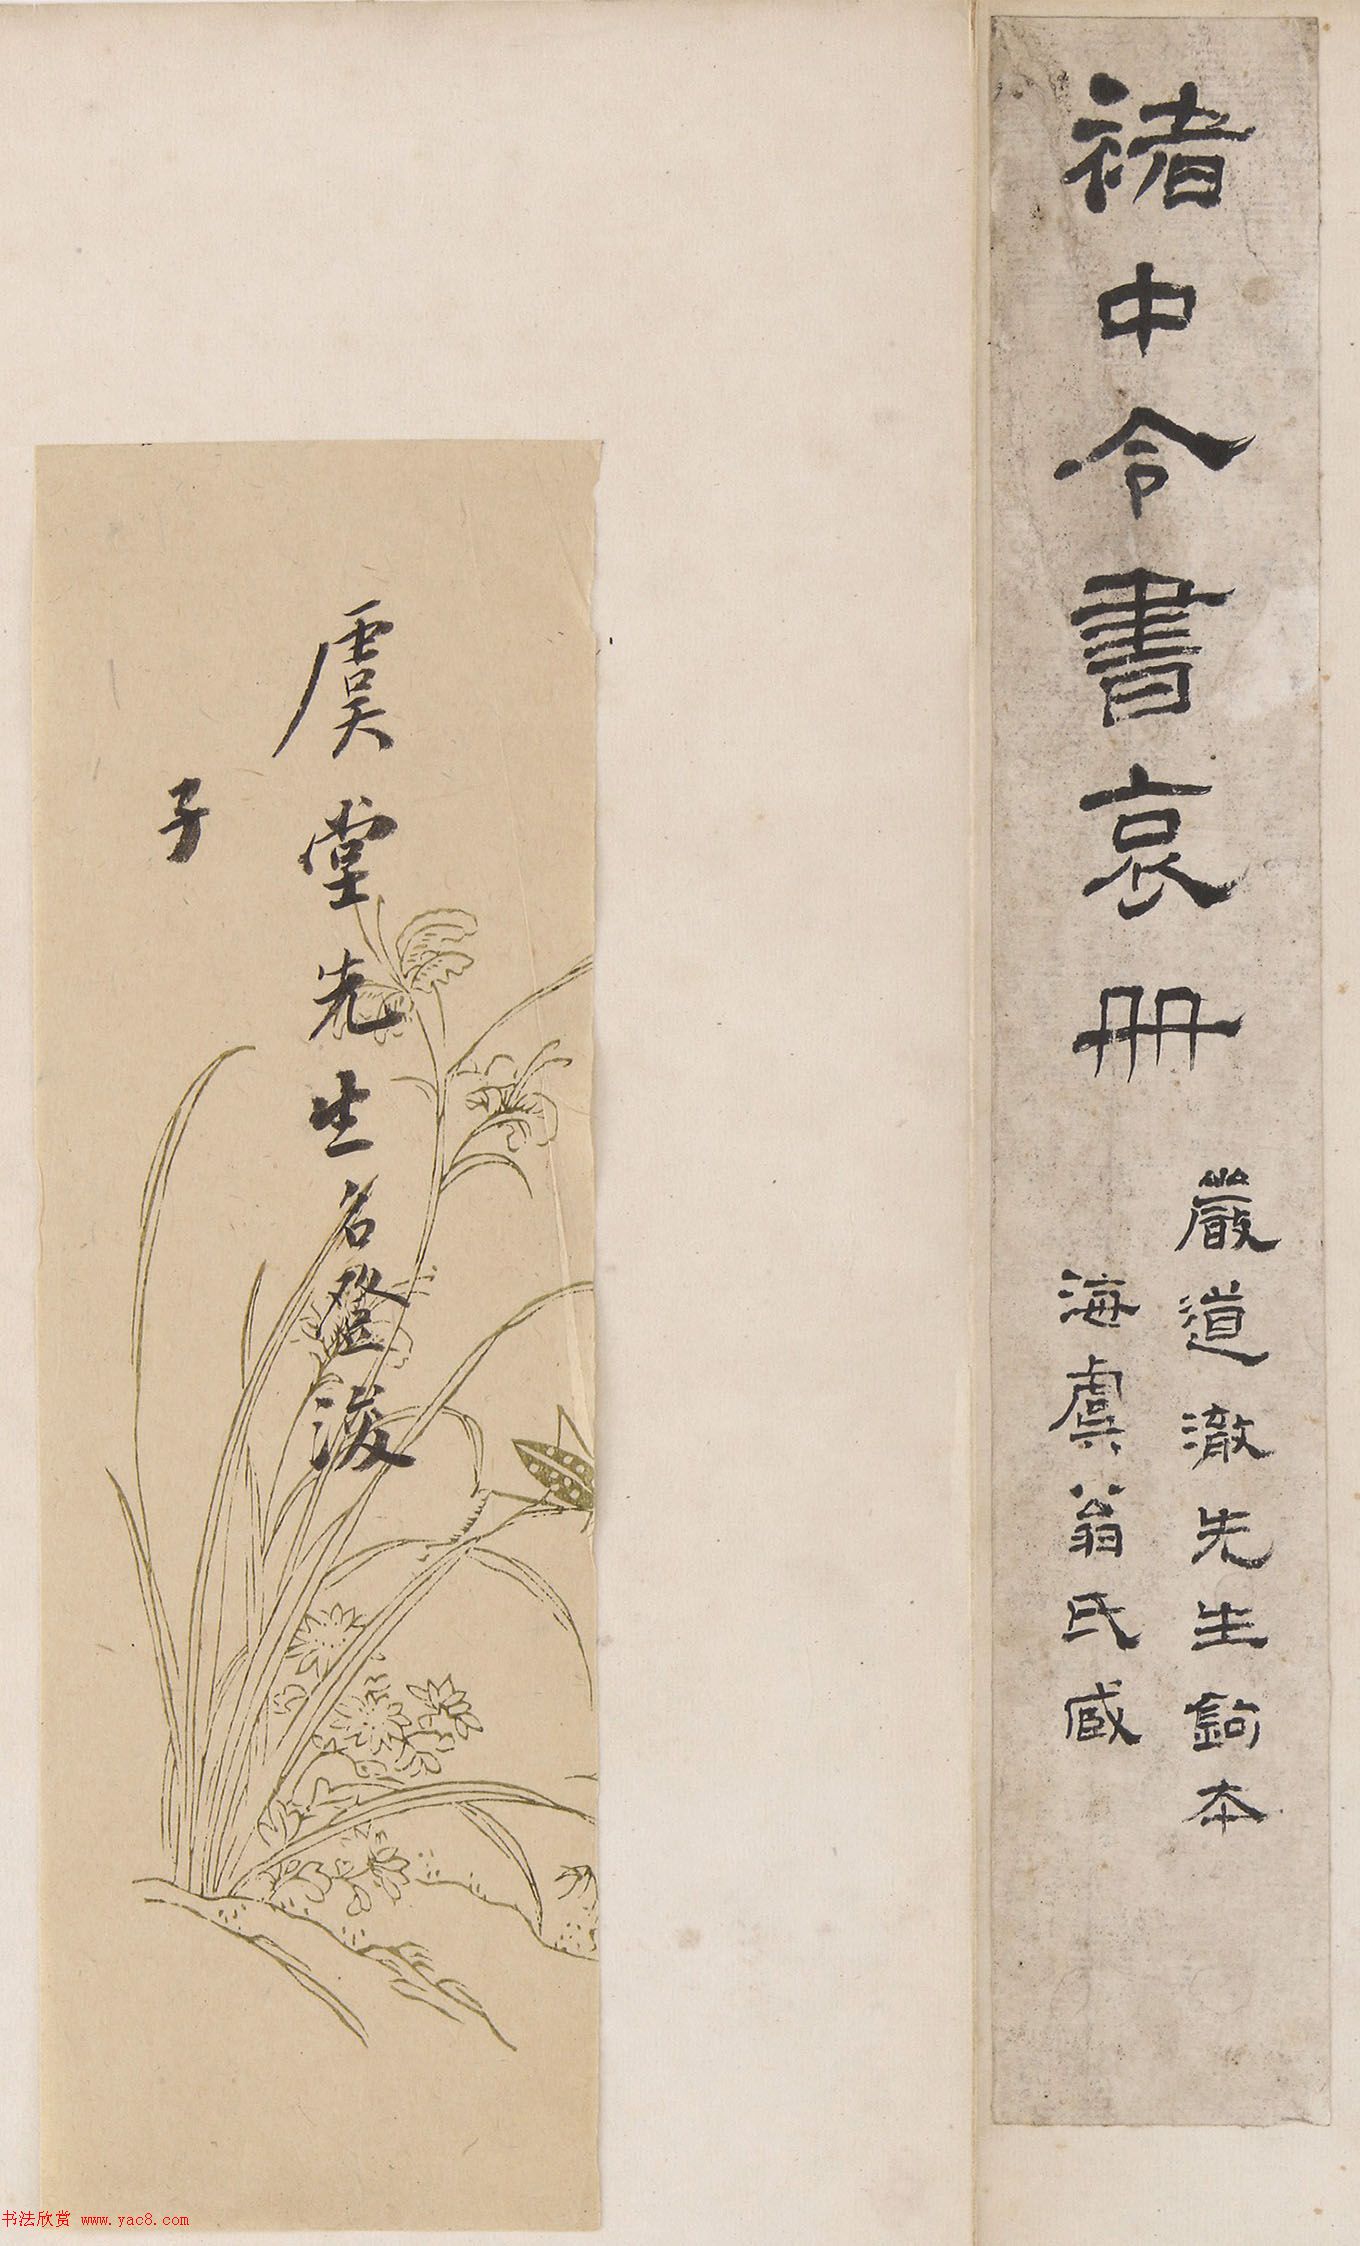 褚中令書哀冊
嚴道澈先生鉤本
海虞翁氏臧
虞堂先生名登浚
子
书法欣赏 www.yac8.com